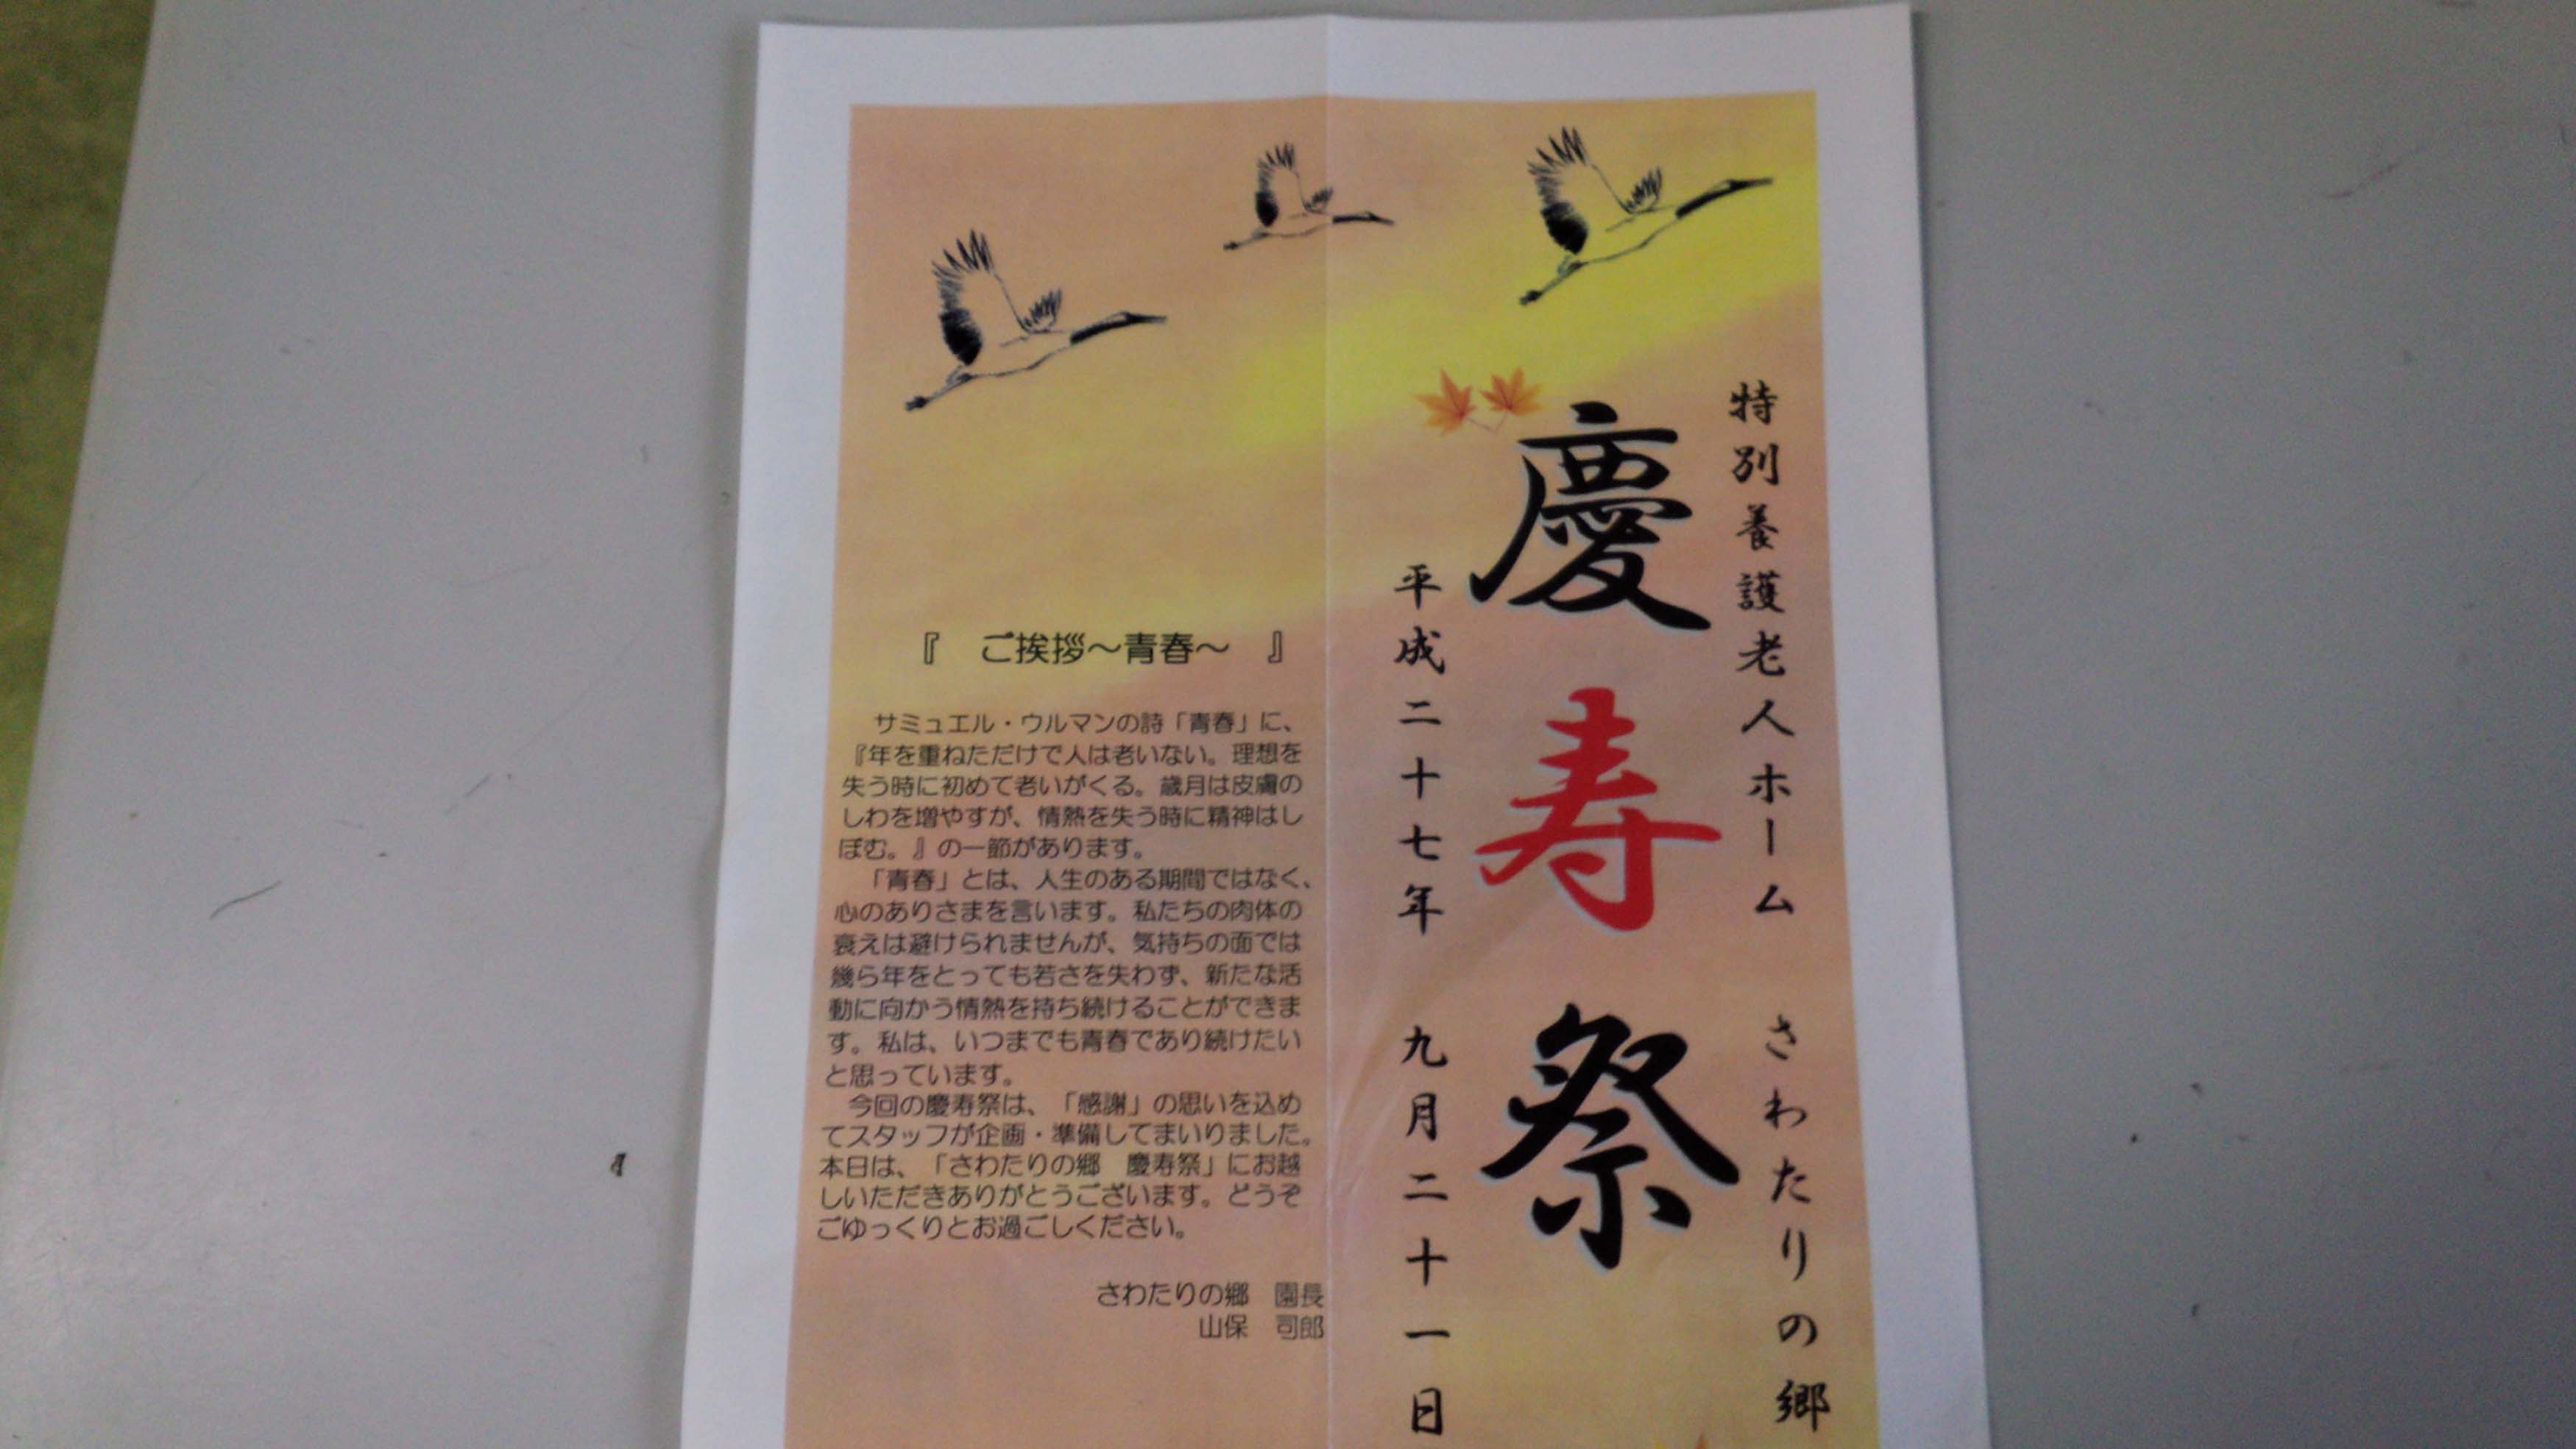 特別養護老人ホーム　さわたりの郷
慶寿祭
平成二十七年　九月二十一日
『　ご挨拶～青春～　』
サミュエル・ウルマンの詩「青春」に、
『年を重ねただけで人は老いない。理想を
失う時に初めて老いがくる。歳月は皮膚の
しわを増やすが、情熱を失う時に精神はし
ぼむ。』の一節があります。
「青春」とは、人生のある期間ではなく、
心のありさまを言います。私たちの肉体の
衰えは避けられませんが、気持ちの面では
幾ら年をとっても若さを失わず、新たな活
動に向かう情熱を持ち続けることができま
す。私は、いつまでも青春であり続けたい
と思っています。
今回の慶寿祭は、「感謝」の思いを込め
てスタッフが企画・準備してまいりました。
本日は、「さわたりの郷　慶寿祭」にお越
しいただきありがとうございます。どうぞ
ごゆっくりとお過ごしください。
さわたりの郷　園長
山保　司郎